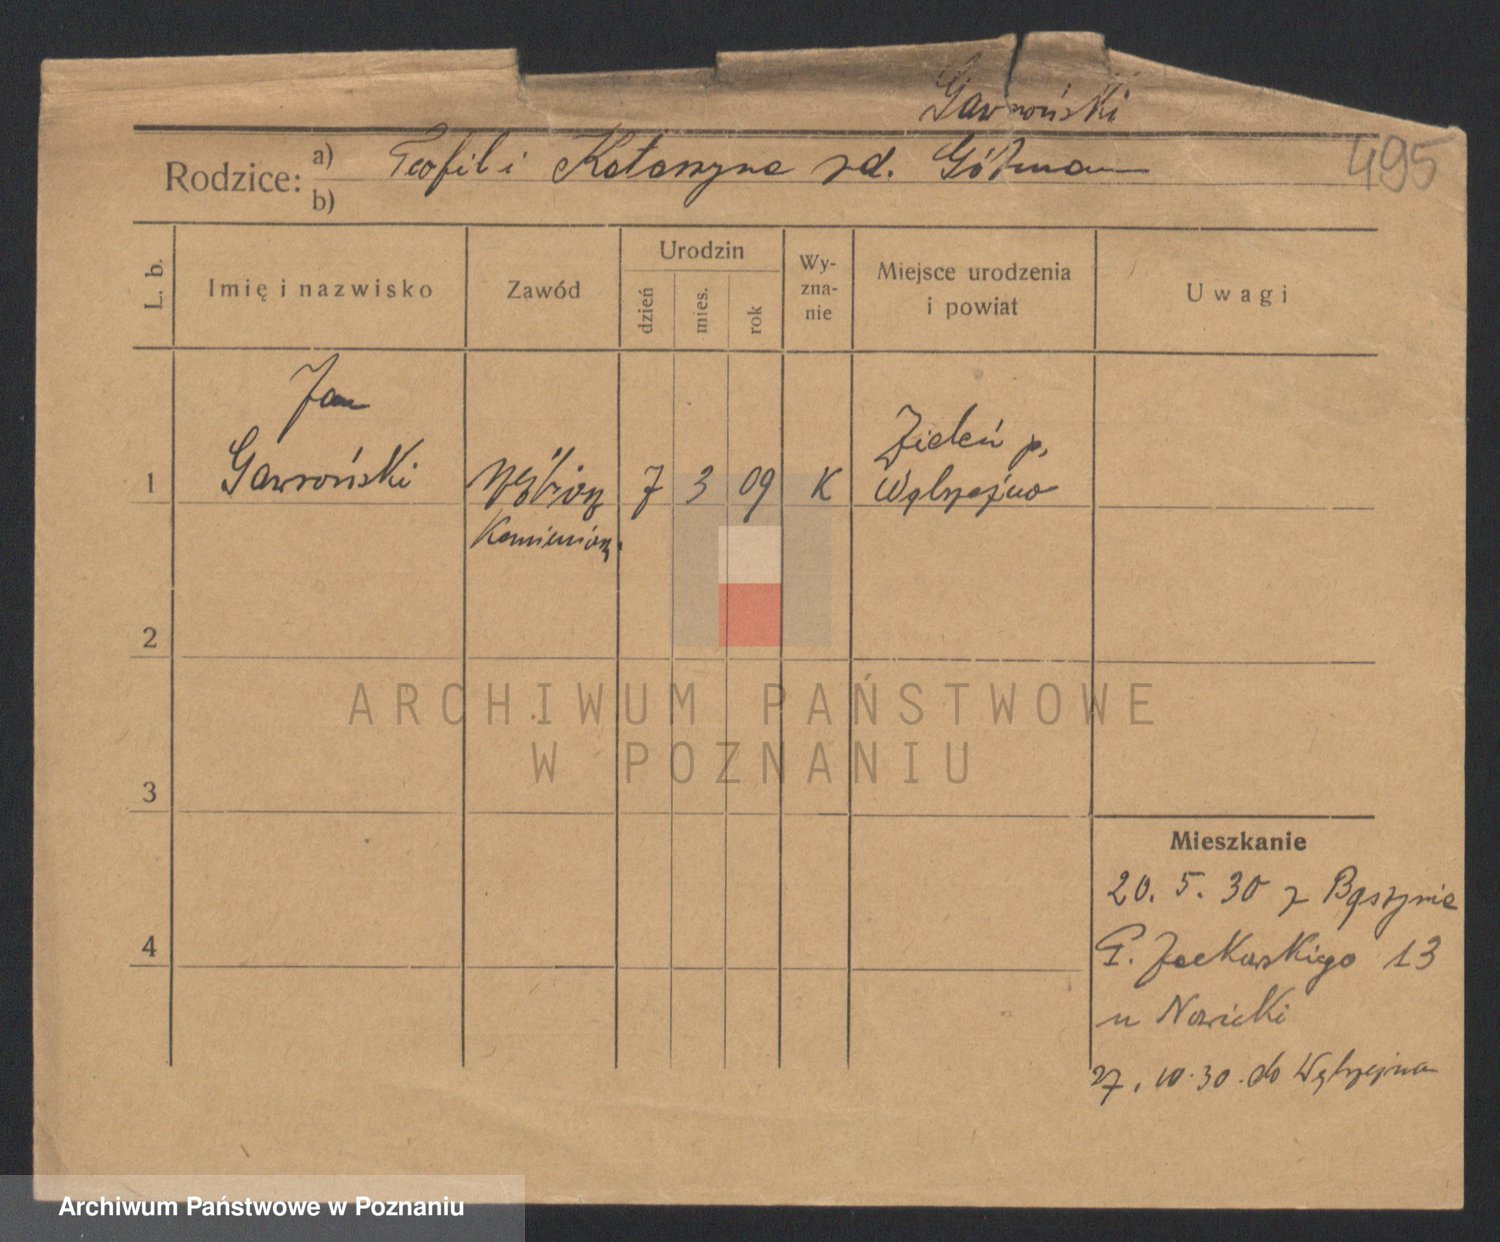 Gawroński
495
Rodzice: a) Teofil i Katarzyna zd. Götzman
b)
L. b.
Imię i nazwisko
Zawód
Urodzin
dzień
mies.
rok
Wy-
zna-
nie
Miejsce urodzenia
i powiat
Uwagi
Jan
1 Gawroński 7 3 09 K
Zieleń p.
Wąbrzeźno
2
3
4
Mieszkanie
20. 5. 30 z
P. Jackowskiego 13
u Nowicki
27. 10. 30. do Wąbrzeźna
ARCHIWUM PAŃSTWOWE
W POZNANIU
Archiwum Państwowe w Poznaniu